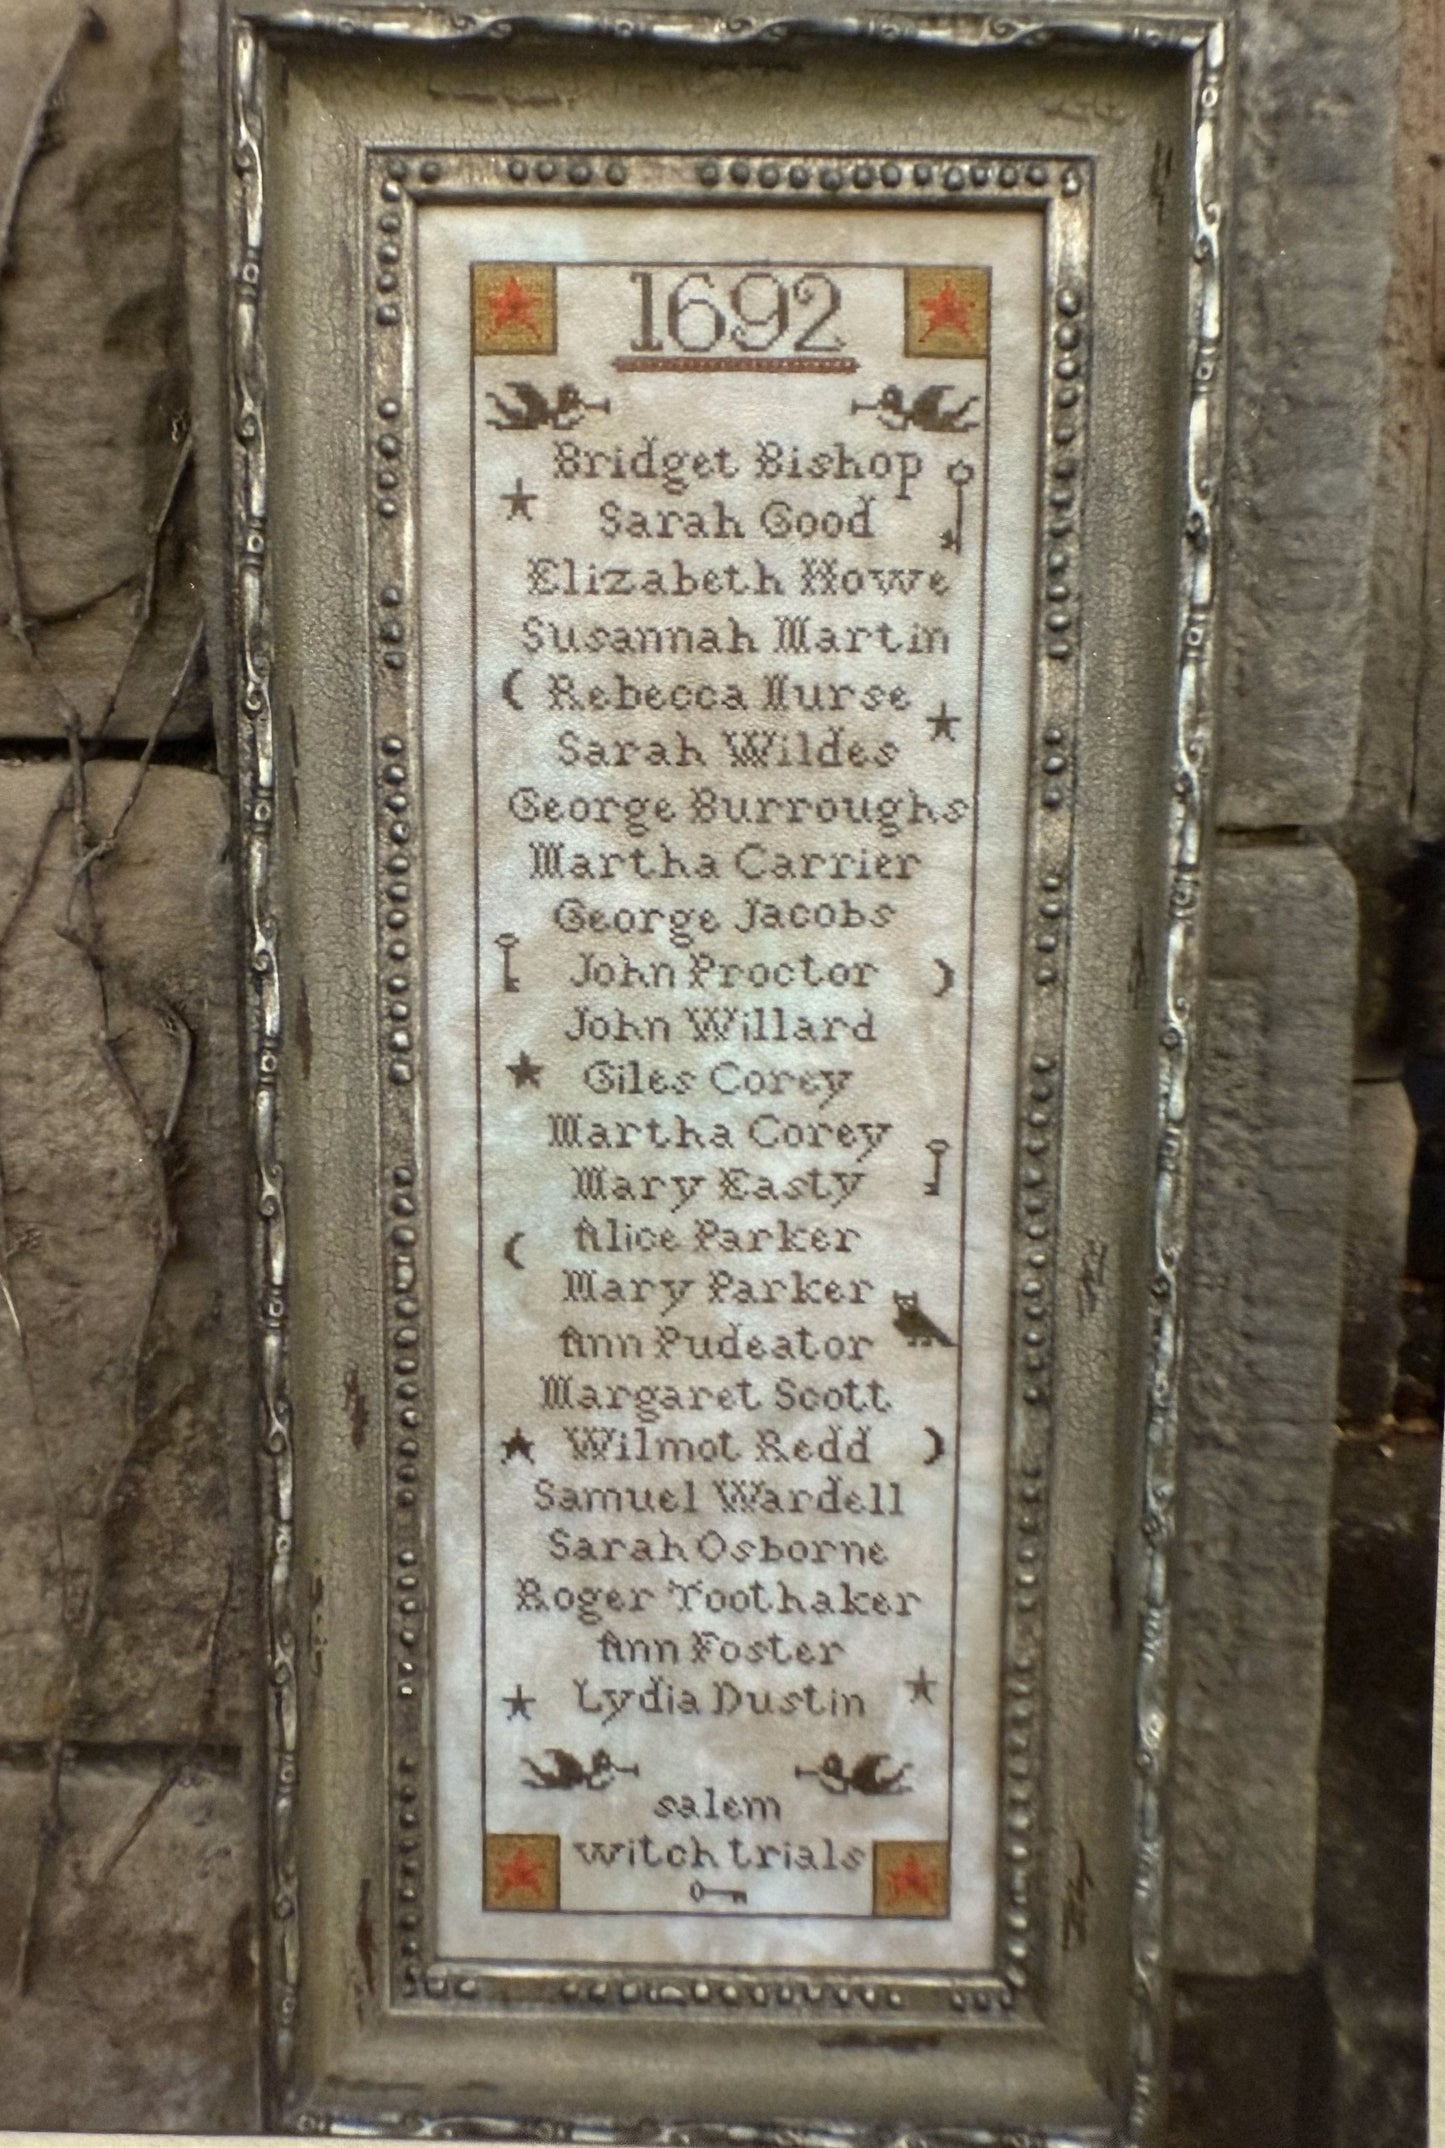 1692
Bridget Bishop
Sarah Good
Elizabeth Howe
Susannah Martin
Rebecca Nurse
Sarah Wildes
George Burroughs
Martha Carrier
George Jacobs
John Proctor
John Willard
Giles Corey
Martha Corey
Mary Easty
Alice Parker
Mary Parker
Ann Pudeator
Margaret Scott
Wilmot Redd
Samuel Wardell
Sarah Osborne
Roger Toothaker
Ann Foster
Lydia Dustin
salem
witch trials